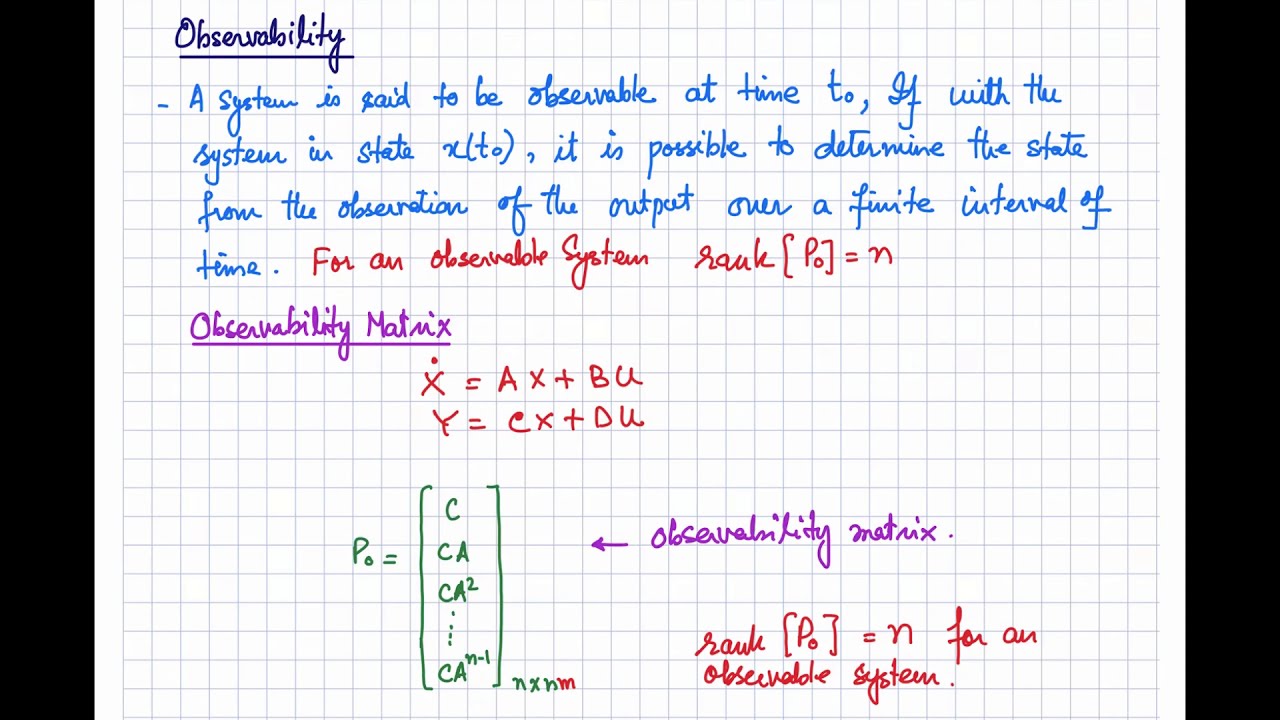 Observability
- A system is said to be observable at time t₀, If with the
system in state x(t₀), it is possible to determine the state
from the observation of the output over a finite interval of
time. For an observable System rank[P₀] = n
Observability Matrix
Ẋ = AX + BU
Y = CX + DU
P₀ = [
C
CA
CA²
⋮
CAⁿ⁻¹
] n×nm
← observability matrix.
rank [P₀] = n for an
observable system.